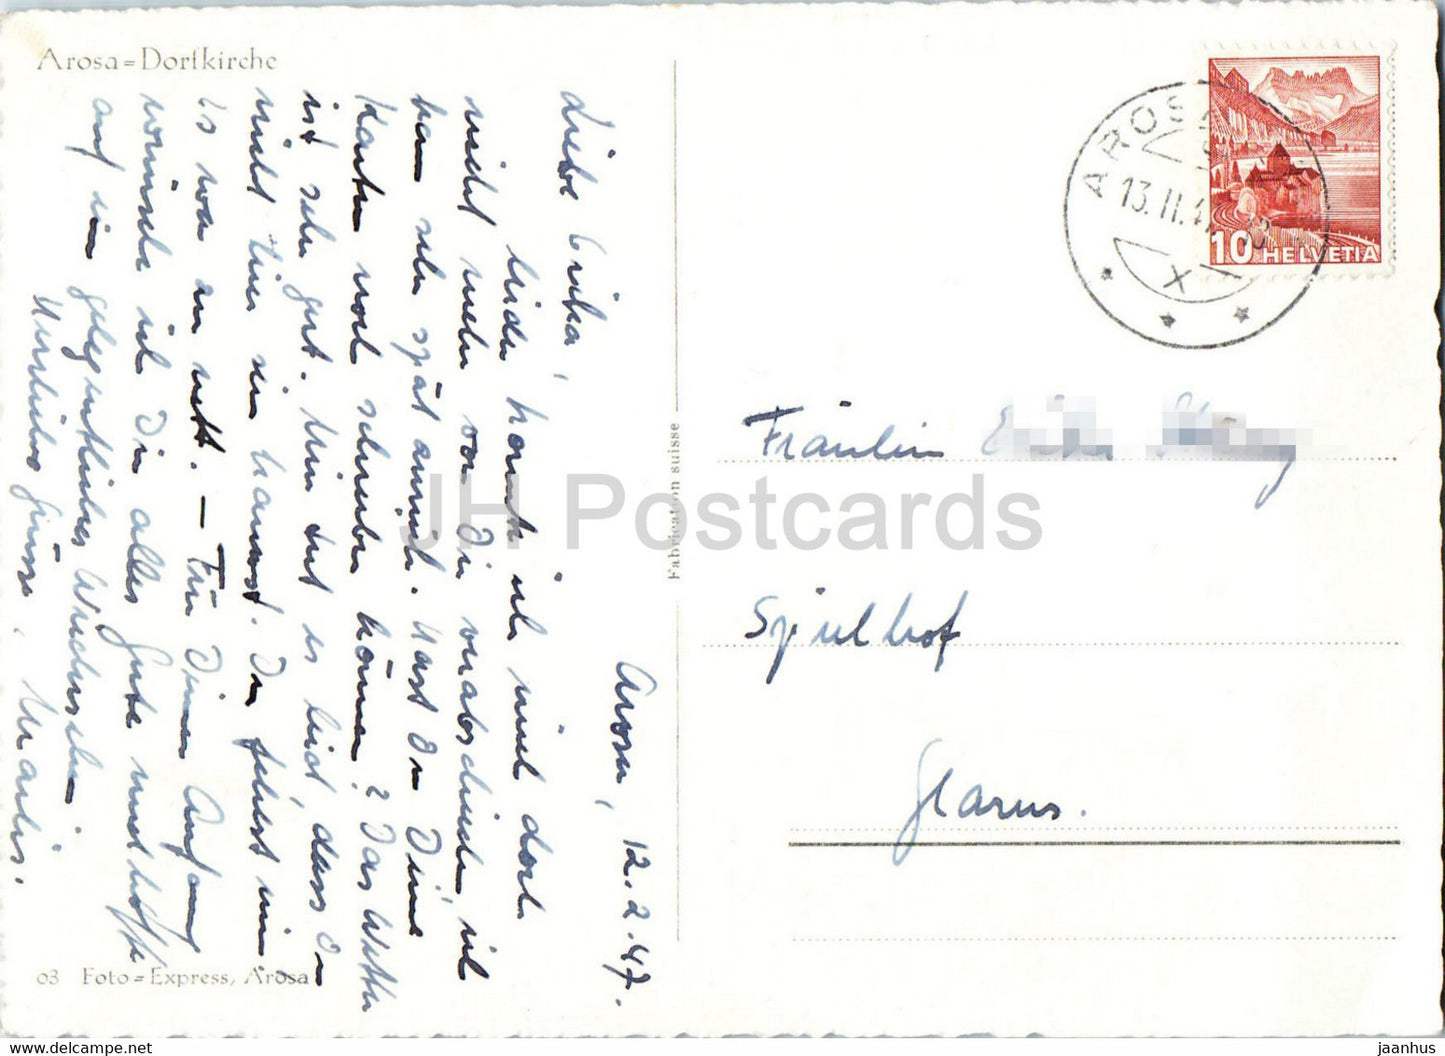 Arosa=Dorfkirche
Arosa, 12.2.47.
Liebe Erika,
leider konnte ich mich dort
nicht mehr von Dir verabschieden, ich
kam sehr spät zurück. Hast Du Deine
Karten noch schreiben können? Das Wetter
ist sehr gut. Mir tut es leid, dass Du
nicht hier sein kannst. Du fehlst mir.
Es war so nett. — Für Deinen Anfang
wünsche ich Dir alles Gute und hoffe
auf ein gelegentliches Wiedersehen
Herzliche Grüsse, Marlis.
03 Foto=Express, Arosa
Fabrication suisse
AROSA
13.II.4
X
10 HELVETIA
Fräulein
Spielhof
Glarus.
JH Postcards
jaanhus
https://www.delcampe.net